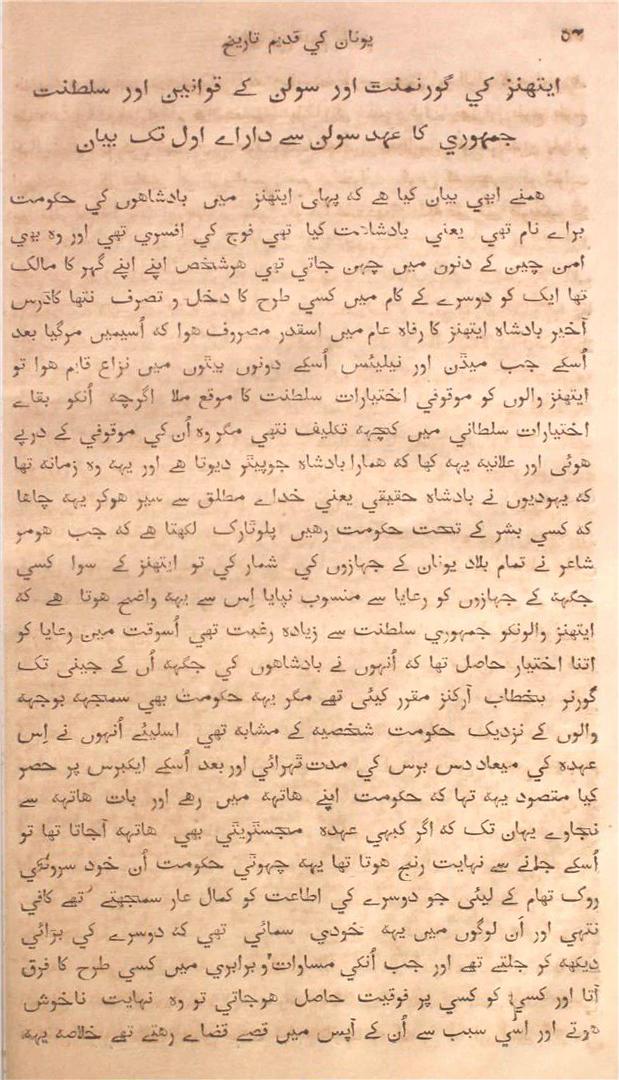 ۵۲ یونان کي قدیم تاریخ
ایتھنز کي گورنمنت اور سولن کے قوانین اور سلطنت
جمہوري کا عہد سولن سے داراے اول تک بیان
ہمنے ابھي بیان کیا ھے کہ پہلی ایتھنز میں بادشاھوں کي حکومت
براے نام تھي یعني بادشاہت کیا تھي فوج کي افسري تھي اور وہ بھي
امن چین کے دنوں میں چہن جاتي تھي ھرشخص اپنے اپنے گہر کا مالک
تہا ایک کو دوسرے کے کام میں کسي طرح کا دخل و تصرف نتھا کاڈرس
آخیر بادشاہ ایتھنز کا رفاہ عام میں اسقدر مصروف ھوا کہ اُسیمیں مرگیا بعد
اُسکے جب میڈن اور نیلیئس اُسکے دونوں بیٹوں میں نزاع قایم ھوا تو
ایتھنز والوں کو موقوفي اختیارات سلطنت کا موقع ملا اگرچہ اُنکو بقاے
اختیارات سلطاني میں کچھہ تکلیف نتھي مگر وہ اُن کي موقوفي کے درپے
ھوئي اور علانیہ یہہ کہا کہ ھمارا بادشاہ جوپیٹر دیوتا ھے اور یہہ وہ زمانہ تھا
کہ یہودیوں نے بادشاہ حقیقي یعني خداے مطلق سے سیر ھوکر یہہ چاھا
کہ کسي بشر کے تحت حکومت رھیں پلوٹارک لکھتا ھے کہ جب ھومر
شاعر نے تمام بلاد یونان کے جہازوں کي شمار کي تو ایتھنز کے سوا کسي
جگہہ کے جہازوں کو رعایا سے منسوب نپایا اِس سے یہہ واضح ھوتا ھے کہ
ایتھنز والونکو جمہوري سلطنت سے زیادہ رغبت تھي اُسوقت میں رعایا کو
اتنا اختیار حاصل تھا کہ اُنہوں نے بادشاھوں کي جگہہ اُن کے جیني تک
گورنر بخطاب آرکنز مقرر کیئی تھے مگر یہہ حکومت بھي سمجہہ بوجہہ
والوں کے نزدیک حکومت شخصیہ کے مشابہ تھي اسلیئے اُنہوں نے اِس
عہدہ کي میعاد دس برس کي مدت ٹہرائي اور بعد اُسکے ایکبرس پر حصر
کیا مقصود یہہ تہا کہ حکومت اپنے ھاتہہ میں رھے اور بات ھاتہہ سے
نجاوے یہاں تک کہ اگر کبہي عہدہ مجسٹریٹي بھي ھاتہہ آجاتا تھا تو
اُسکے جانے سے نہایت رنج ھوتا تھا یہہ چہوٹي حکومت اُن خود سرونکي
روک تھام کے لیئي جو دوسرے کي اطاعت کو کمال عار سمجہتے تھے کافي
نتہي اور اُن لوگوں میں یہہ خودي سمائي تھي کہ دوسرے کي بڑائي
دیکہہ کر جلتے تھے اور جب اُنکي مساوات و برابري میں کسي طرح کا فرق
آتا اور کسي کو کسي پر فوقیت حاصل ھوجاتي تو وہ نہایت ناخوش
ھوتے اور اسي سبب سے اُن کے آپس میں قصے قضاے رھتے تھے خلاصہ یہہ